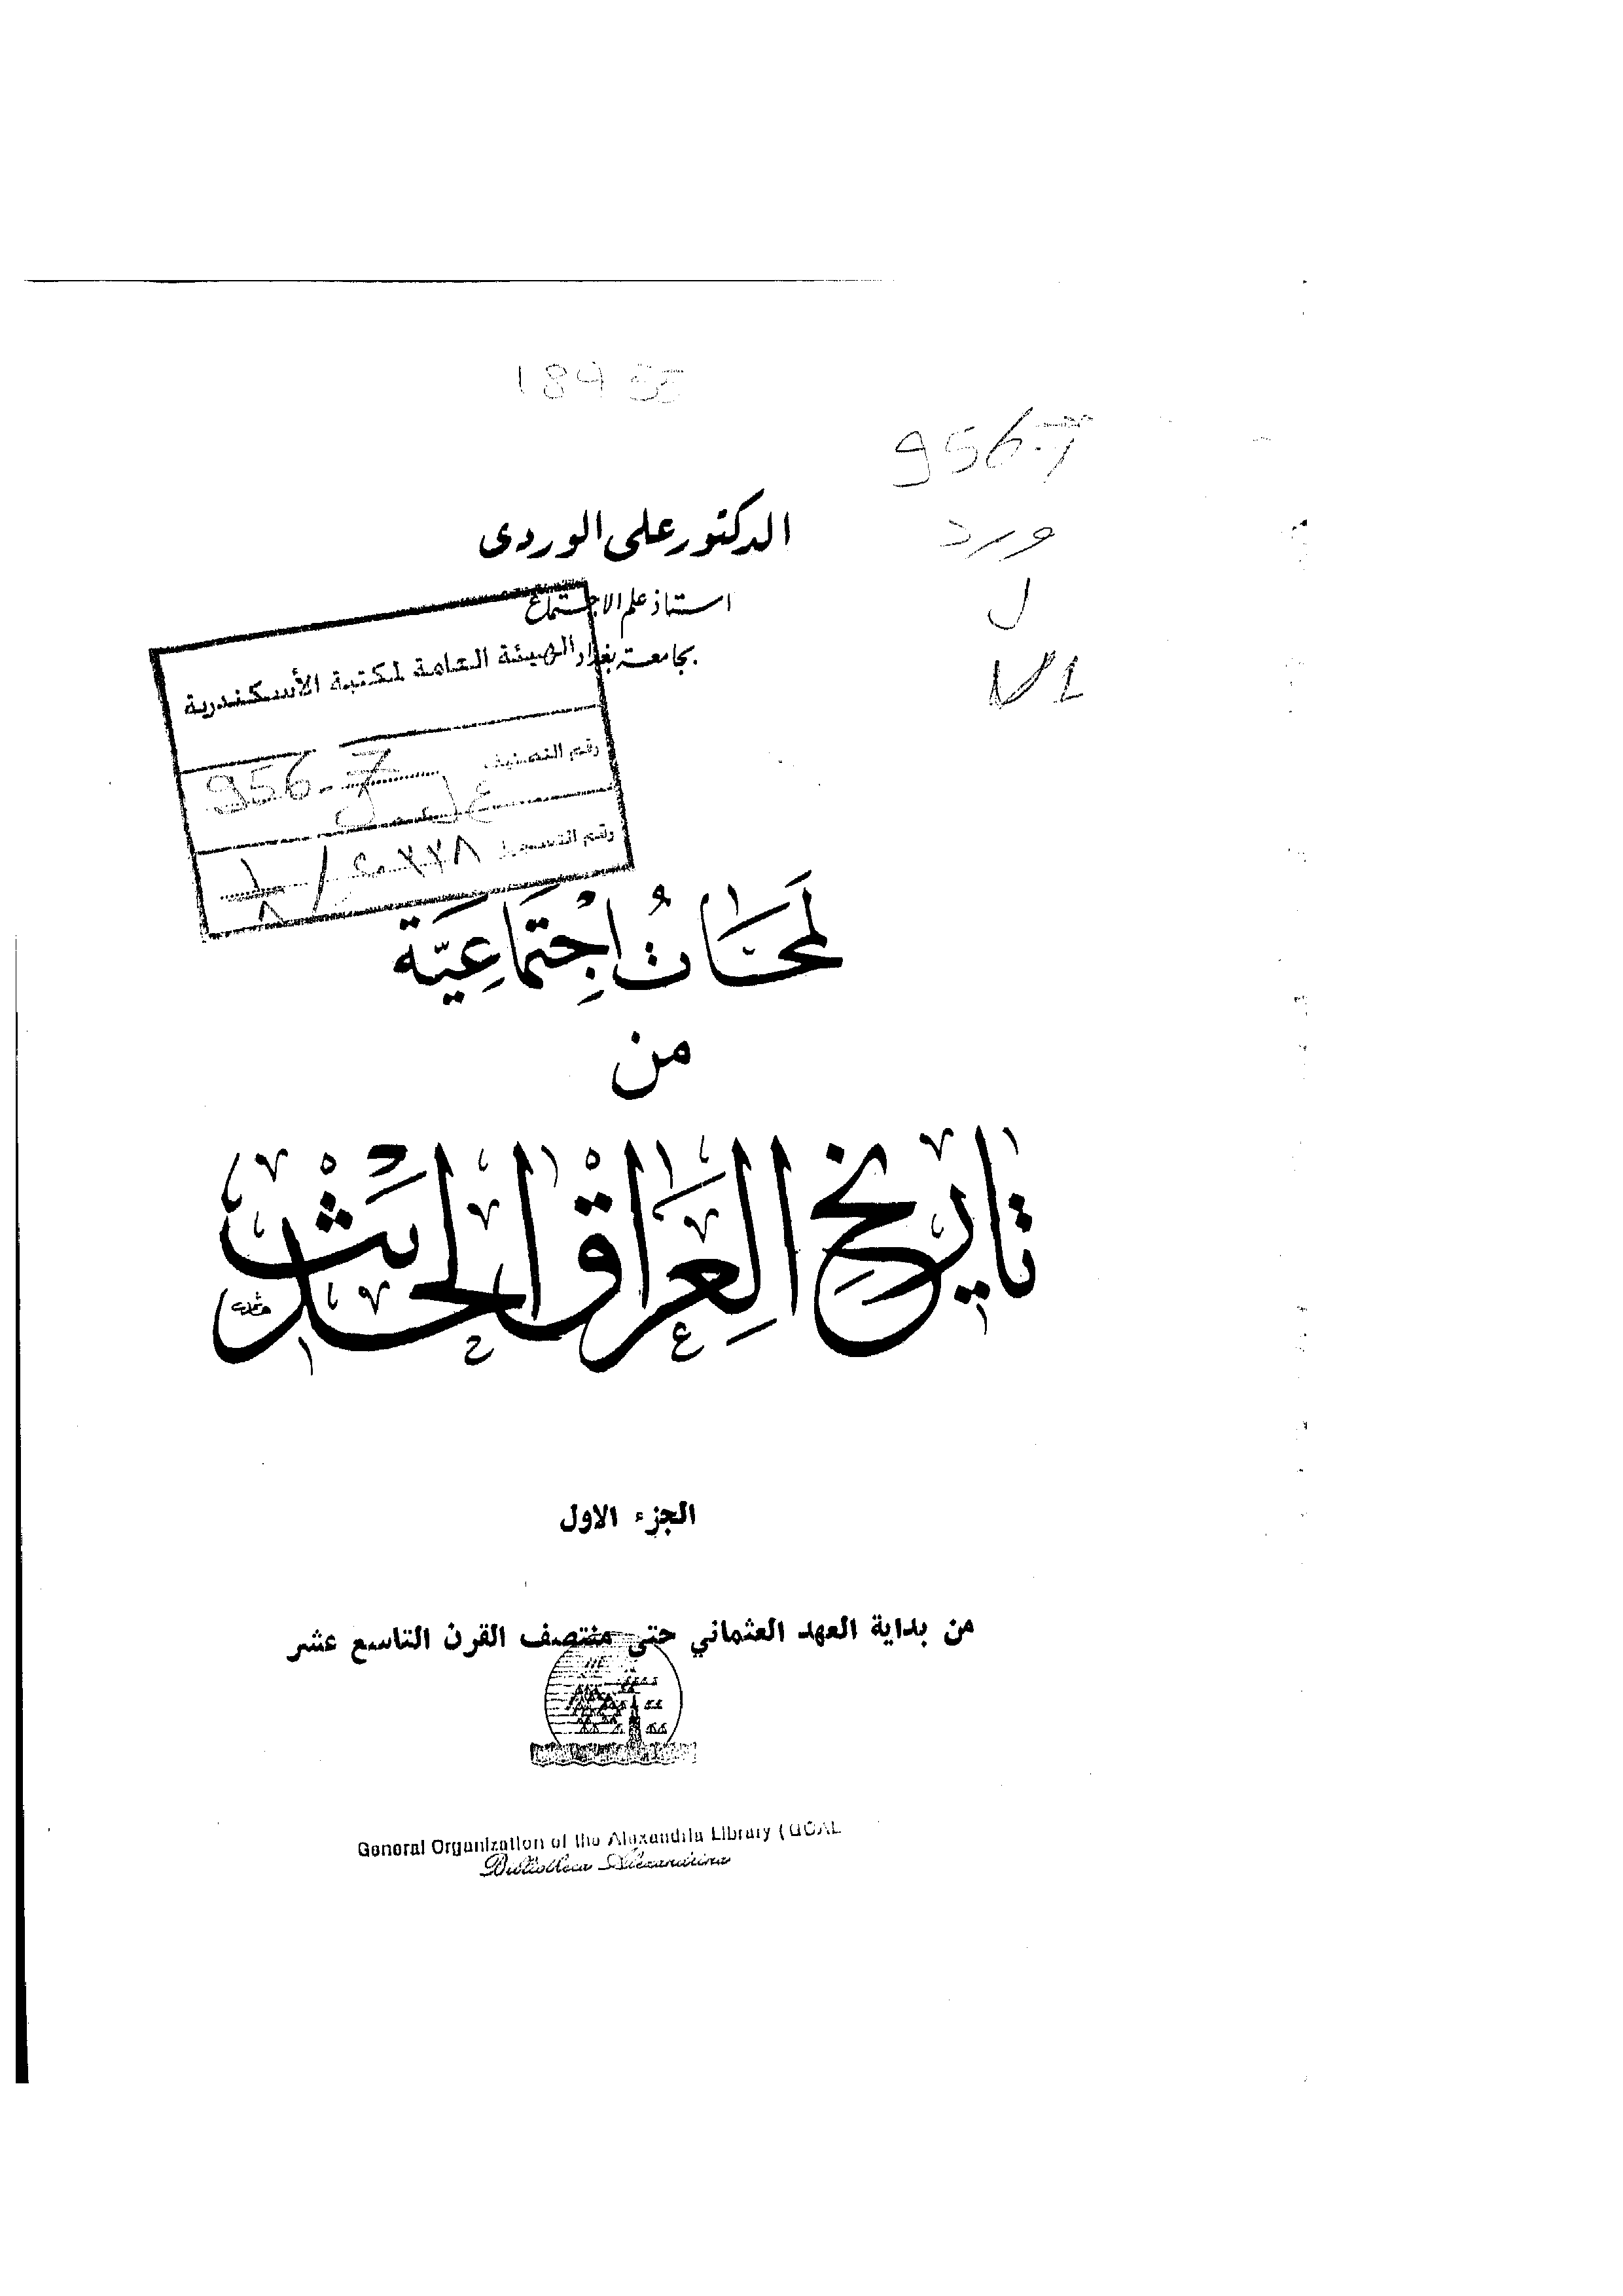 956.7
ورد
ل
V1
الدكتور على الوردى
استاذ علم الاجتماع
بجامعة بغداد
الهيئة العامة لمكتبة الأسكندرية
رقم التصنيف 956.7
رقم التسجيل
لمحَاتُ اجْتِمَاعِيَّة
من
تاريخ العِراقْ الحَديثْ
الجزء الاول
من بداية العهد العثماني حتى منتصف القرن التاسع عشر
General Organization of the Alexandria Library (GOAL
Bibliotheca Alexandrina